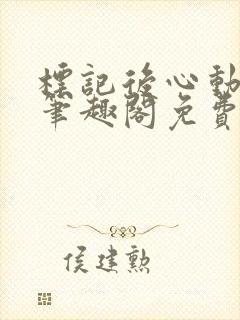 標記後心動
筆趣閣免費
侯建勲